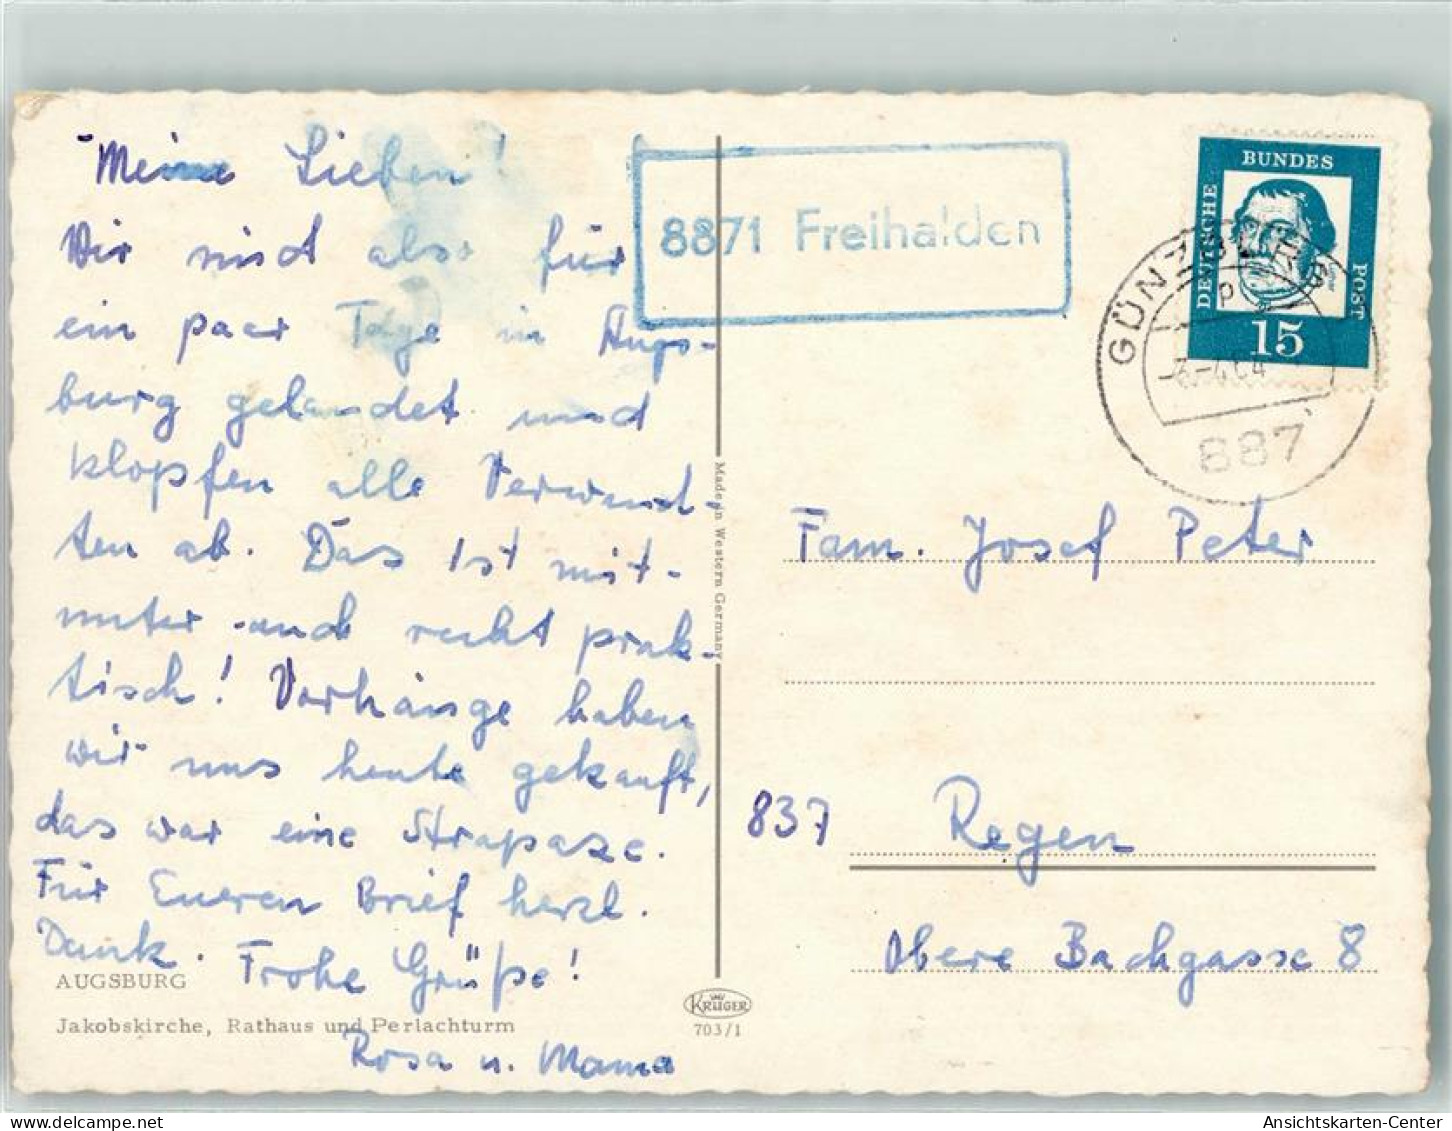 Meine Lieben!
Wir sind also für
ein paar Tage in Augs-
burg gelandet und
klopfen alle Verwand-
ten ab. Das ist mit-
unter auch recht prak-
tisch! Vorhänge haben
wir uns heute gekauft,
das war eine Strapaze.
Für Eueren Brief herzl.
Dank. Frohe Grüße!
Rosa u. Mama
AUGSBURG
Jakobskirche, Rathaus und Perlachturm
Made in Western Germany
KRÜGER
703/1
8871 Freihalden
DEUTSCHE BUNDES POST
15
GÜNZBURG
p
887
Fam. Josef Peter
837 Regen
Obere Bachgasse 8
Ansichtskarten-Center